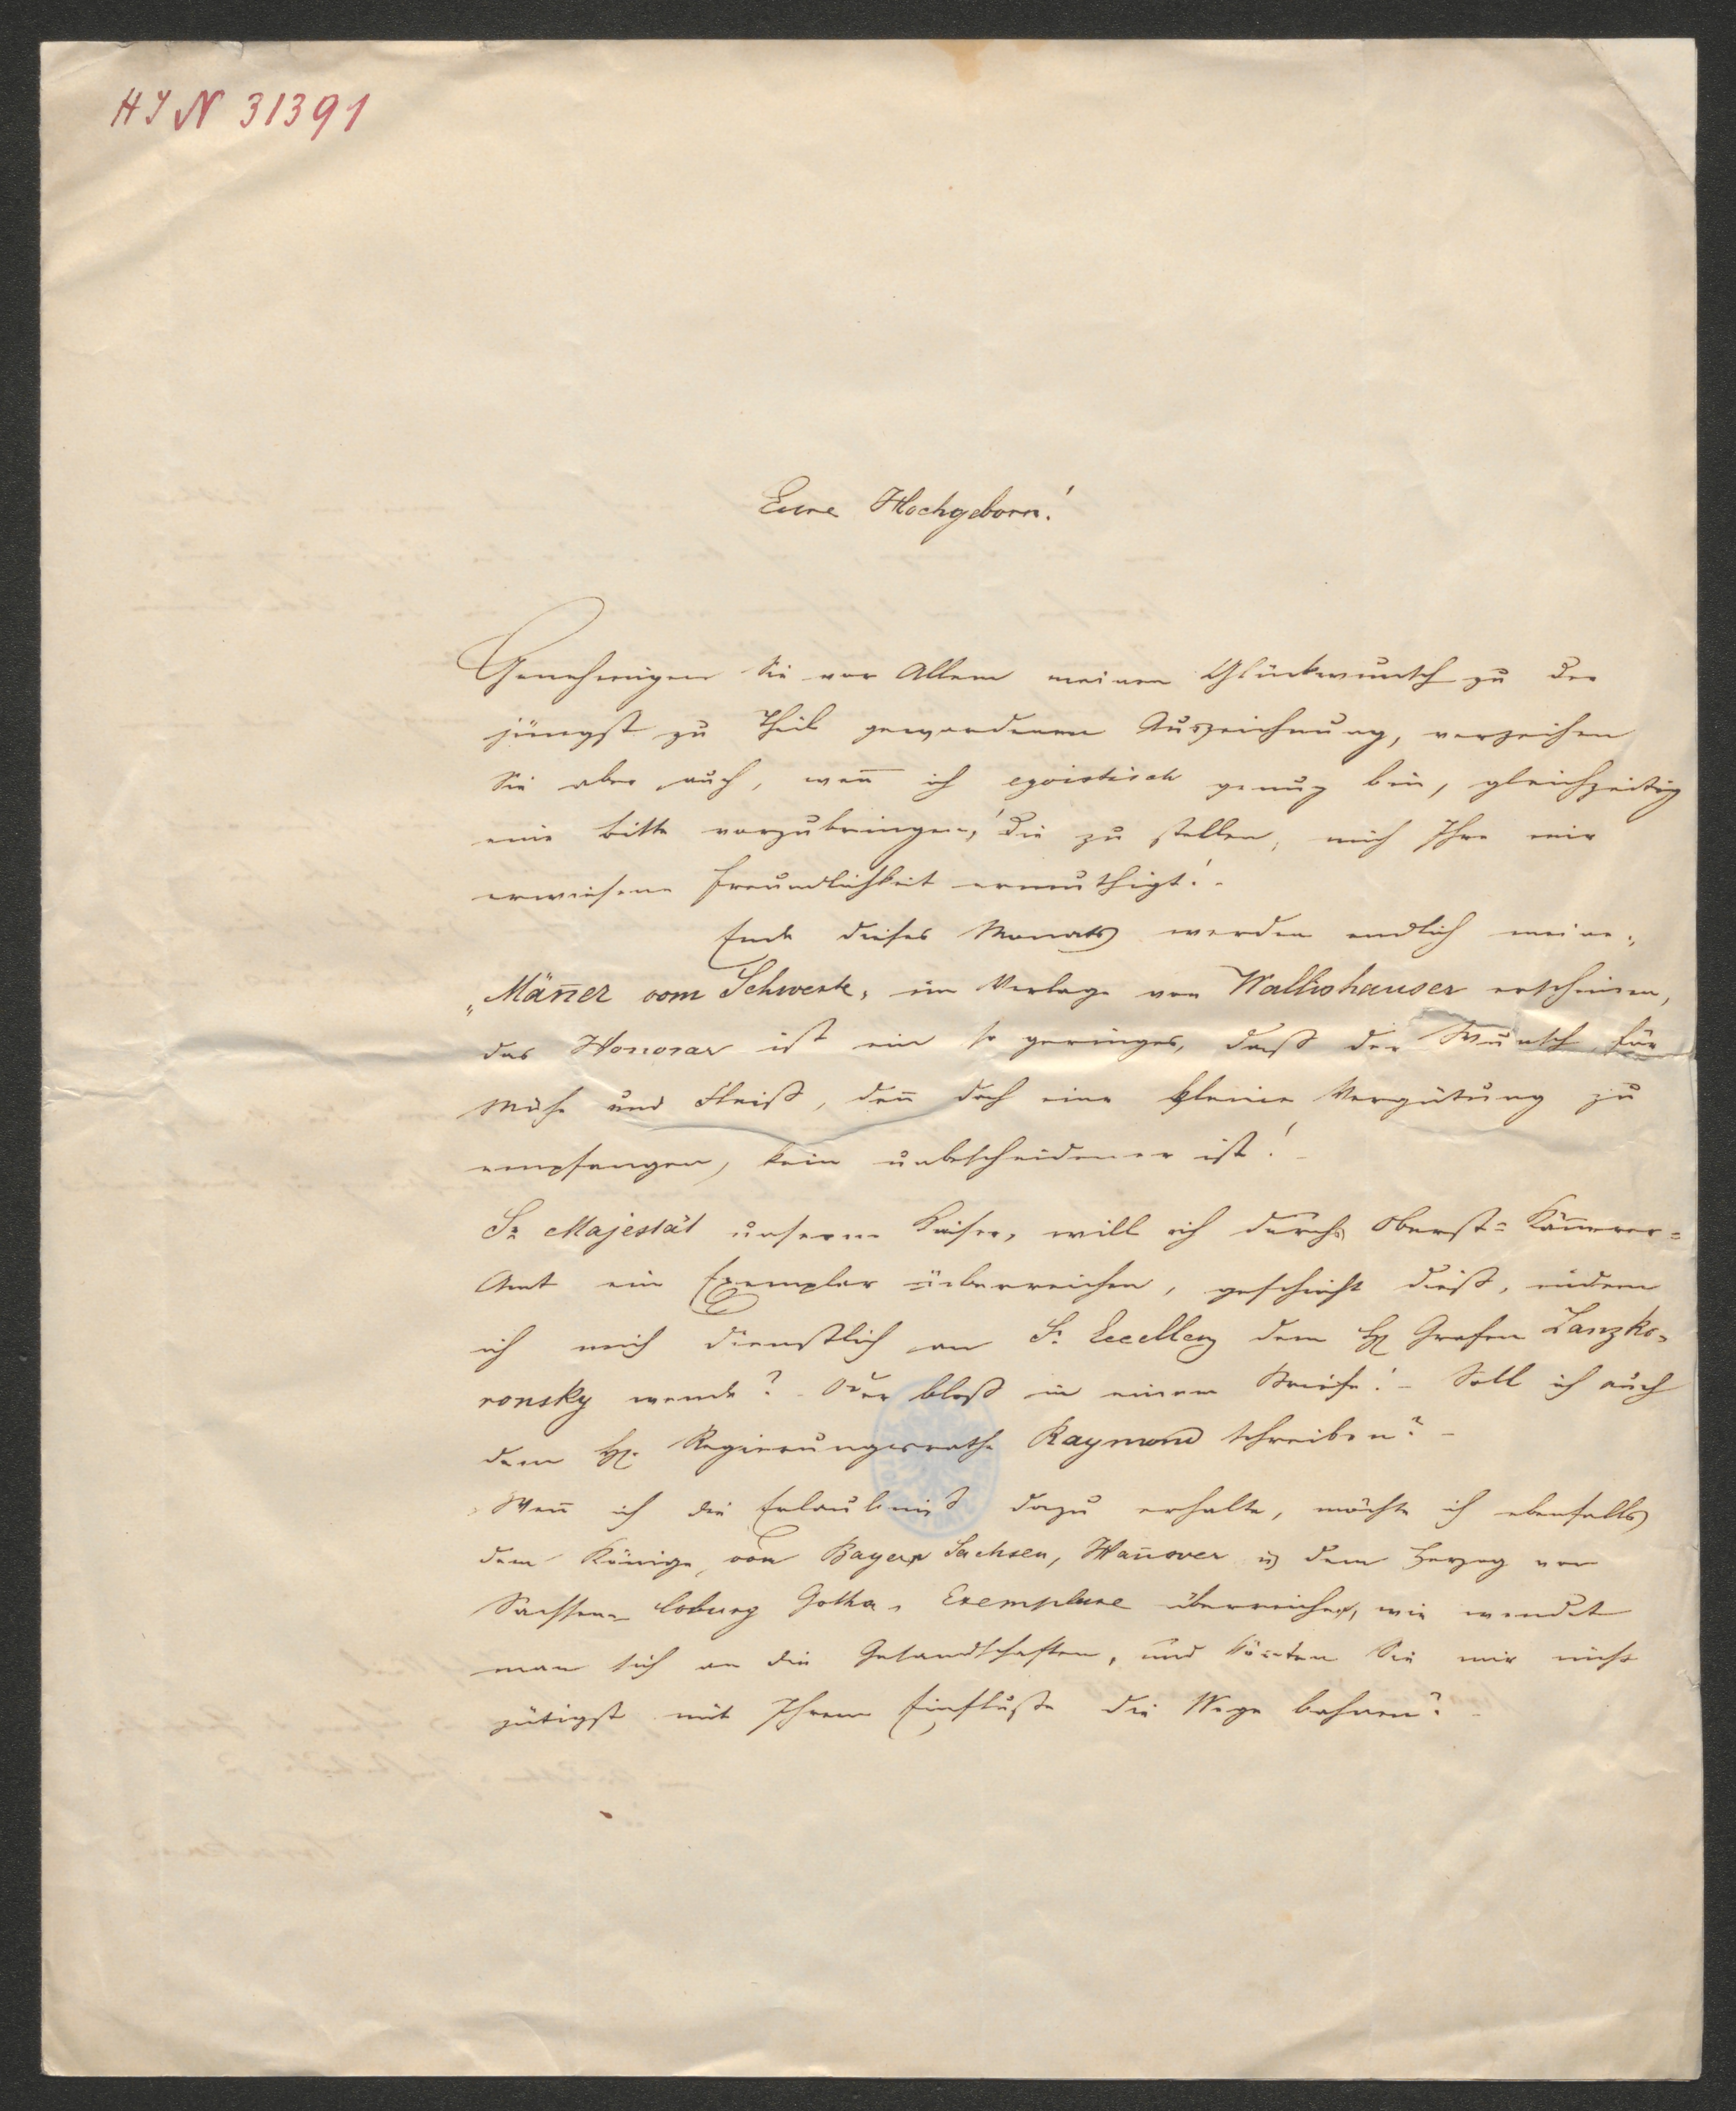 HIN 31391
Eure Hochgeborn!
Genehmigen Sie vor Allem meinen Glückwunsch zu der
jüngst zu Theil gewordenen Auszeichnung, verzeihen
Sie aber auch, wen̅ ich egoistisch genug bin, gleichzeitig
eine Bitte vorzubringen, die zu stellen, mich Ihre mir
erwiesene Freundlichkeit ermuthigt! -
Ende dieses Monats werden endlich meine
„Män̅er vom Schwerte" im Verlage von Wallishauser erscheinen,
das Honorar ist ein so geringes, daß der Wunsch, für
Mühe und Fleiß, den̅ doch eine kleine Vergütung zu
empfangen, kein unbescheidener ist! -
Sr Majestät unserm Kaiser, will ich durchs Oberst=Käm̅erer=
Amt ein Exemplar überreichen, geschieht dieß, indem
ich mich dienstlich an Sr Excellenz dem H. Grafen Lanzko=
ronsky wende? - Oder bloß in einem Briefe! - Soll ich auch
dem H. Regierungsrathe Raymond schreiben? -
Wen̅ ich die Erlaubniß dazu erhalte, möchte ich ebenfalls
dem Könige, von Bayern Sachsen, Han̅over u dem Herzog von
Sachsen Coburg Gotha, Exemplare überreichen, wie wendet
man sich an die Gesandtschaften, und könten Sie mir nicht
gütigst mit Ihrem Einflusse die Wege bahnen? -